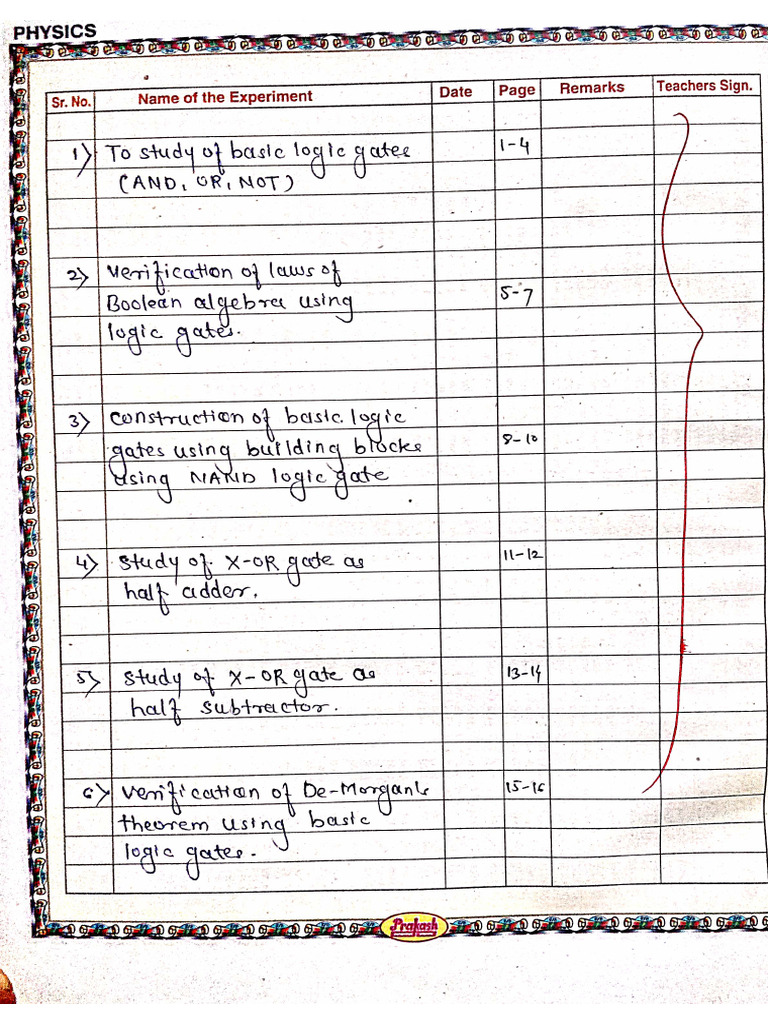 PHYSICS
Sr. No. Name of the Experiment Date Page Remarks Teachers Sign.
1) To study of basic logic gates 1-4
(AND, OR, NOT)
2) Verification of laws of
Boolean algebra using 5-7
logic gates.
3) Construction of basic logic
gates using building blocks 8-10
using NAND logic gate
4) Study of X-OR gate as 11-12
half adder.
5) Study of X-OR gate as 13-14
half subtractor.
6) Verification of De-Morgan's 15-16
theorem using basic
logic gates.
Prakash